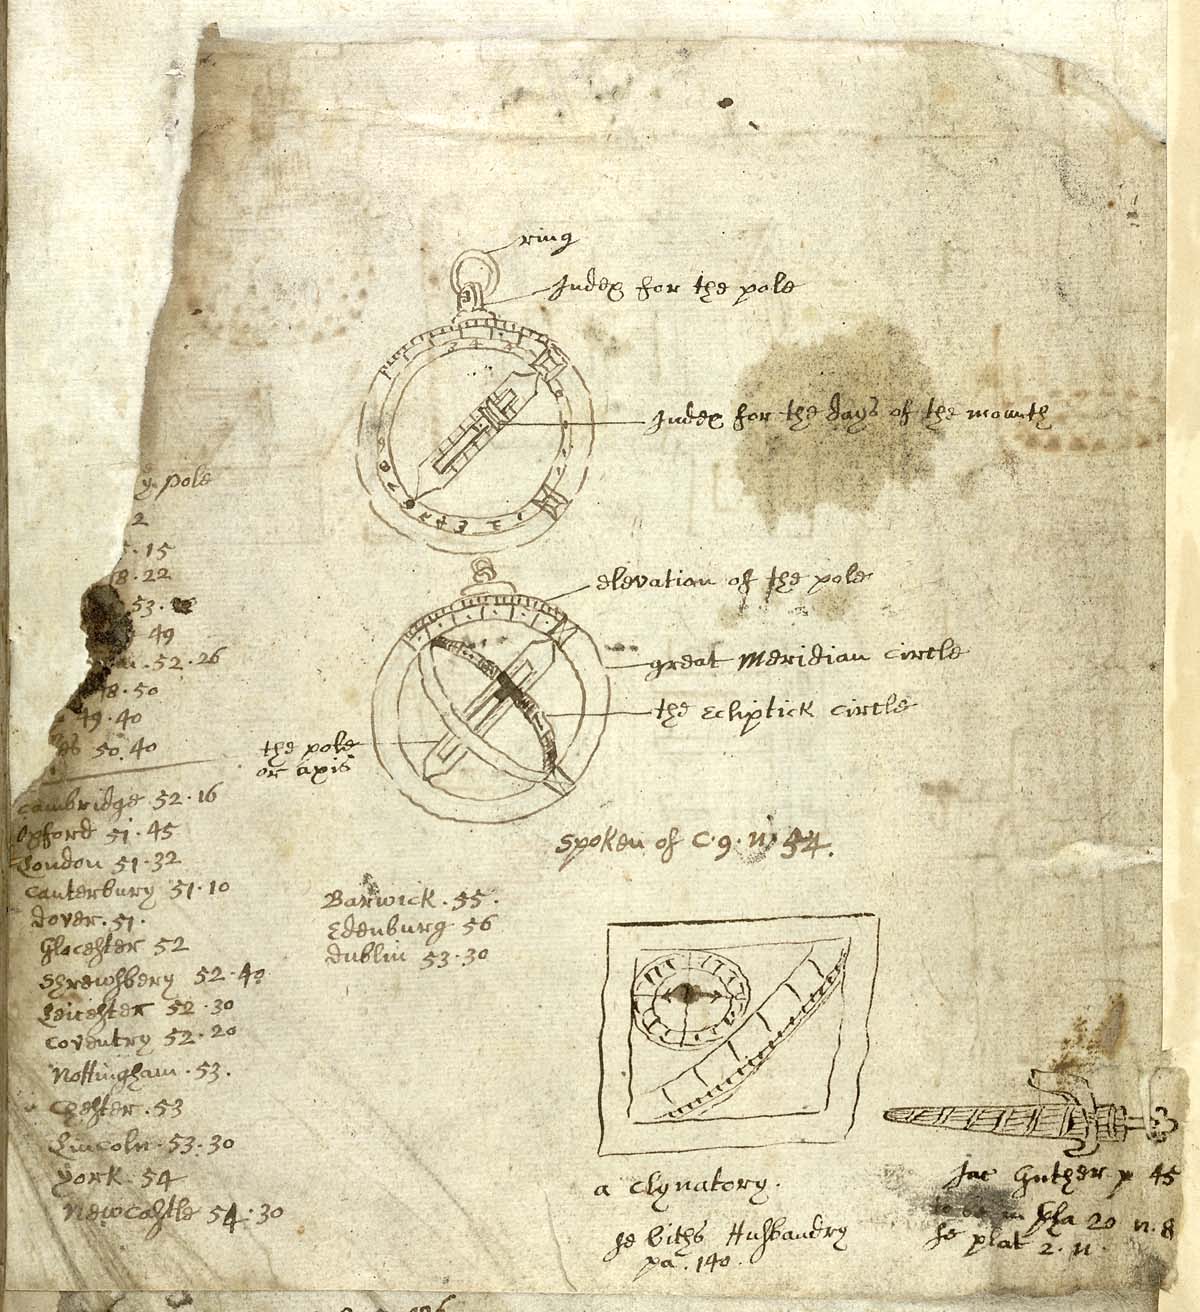 ring
Index for the pole
Index for the days of the mounth
elevation of the pole
great Meridian circle
the Ecliptick circle
the pole
or axis
spoken of C. 9. N 54.
y pole
2
15
8. 22
53.
49
52. 26
8. 50
49. 40
50. 40
Cambridge 52. 16
Oxford 51. 45
London 51. 32
Canterbury 51. 10
Dover. 51.
Glocester 52
Shrewsbery 52. 40
Leicester 52. 30
Coventry 52. 20
Nottingham. 53.
Chester. 53
Lincoln. 53. 30
York. 54
Newcastle 54. 30
Barwick. 55.
Edenburg 56
Dublin 53. 30
a Clynatory.
Husbandry
pa. 140.
p 45
20 n. 8
plat 2. n.